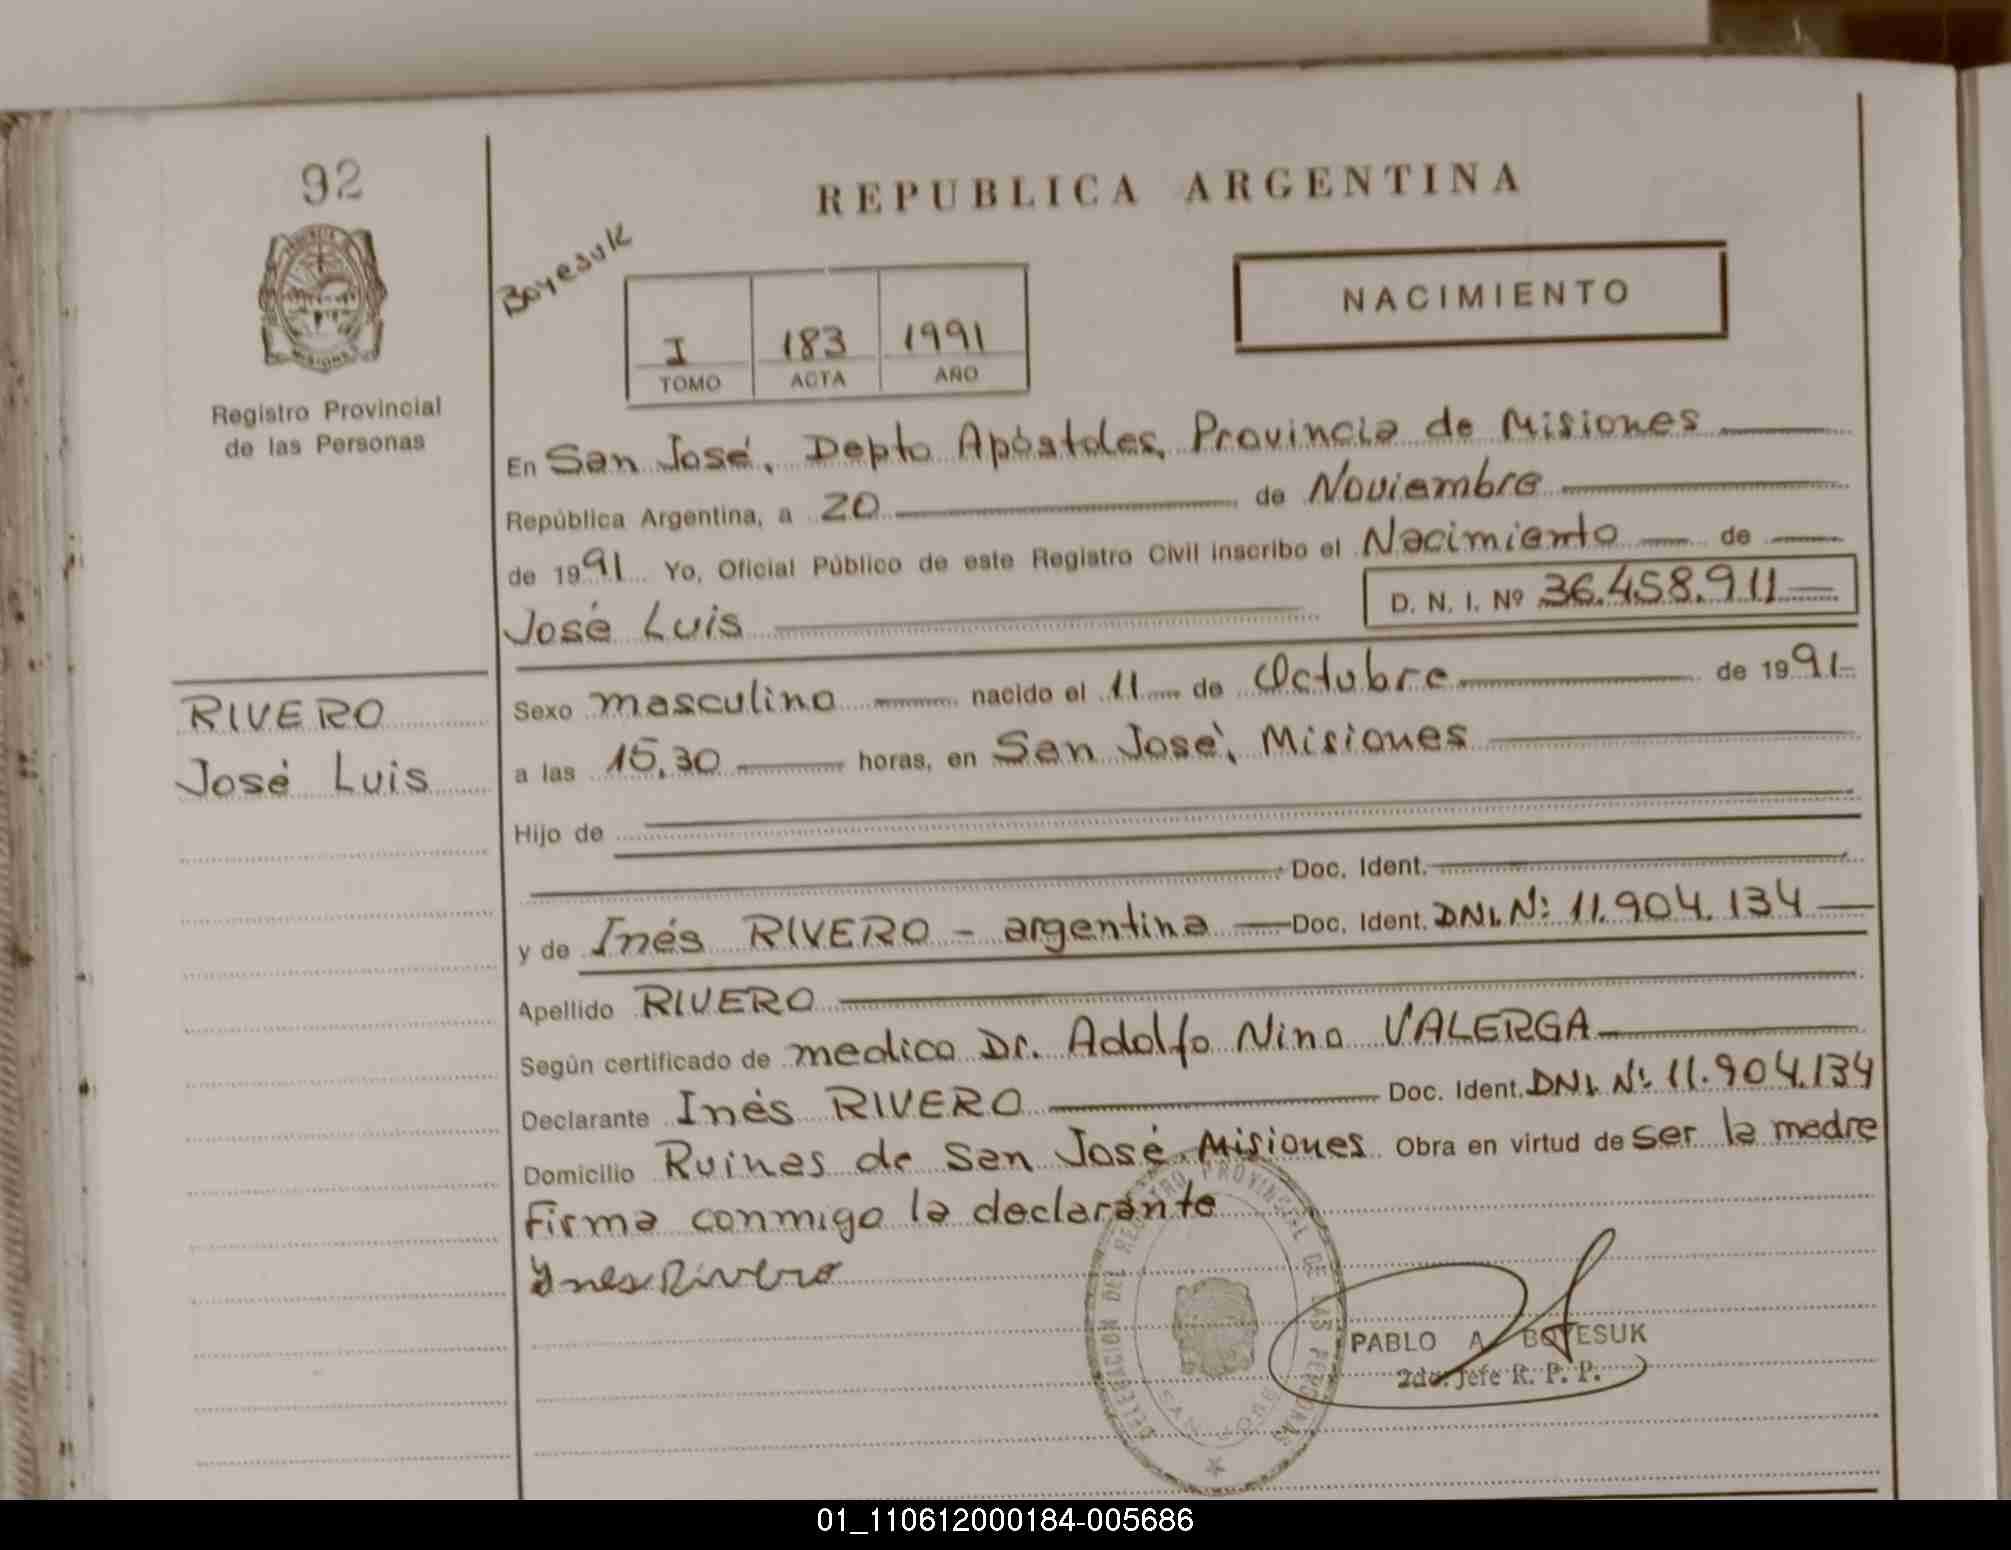 92
REPUBLICA ARGENTINA
Boyesuk
NACIMIENTO
I 183 1991
TOMO ACTA AÑO
Registro Provincial
de las Personas
MISIONES
En San José, Depto Apóstoles, Provincia de Misiones
República Argentina, a 20 de Noviembre
de 1991 Yo, Oficial Público de este Registro Civil inscribo el Nacimiento de
José Luis D. N. I. Nº 36.458.911
RIVERO
José Luis
Sexo masculino nacido el 11 de Octubre de 1991
a las 15,30 horas, en San José, Misiones
Hijo de
Doc. Ident.
y de Inés RIVERO - argentina Doc. Ident. DNI. Nº 11.904.134
Apellido RIVERO
Según certificado de medico Dr. Adolfo Nino VALERGA
Declarante Inés RIVERO Doc. Ident. DNI. Nº 11.904.134
Domicilio Ruinas de San José, Misiones Obra en virtud de ser la madre
Firma conmigo la declarante
Ynes Rivero
DELEGACION DEL REGISTRO PROVINCIAL DE LAS PERSONAS
SAN JOSE
PABLO A. BOYESUK
2do. Jefe R. P. P.
01_110612000184-005686